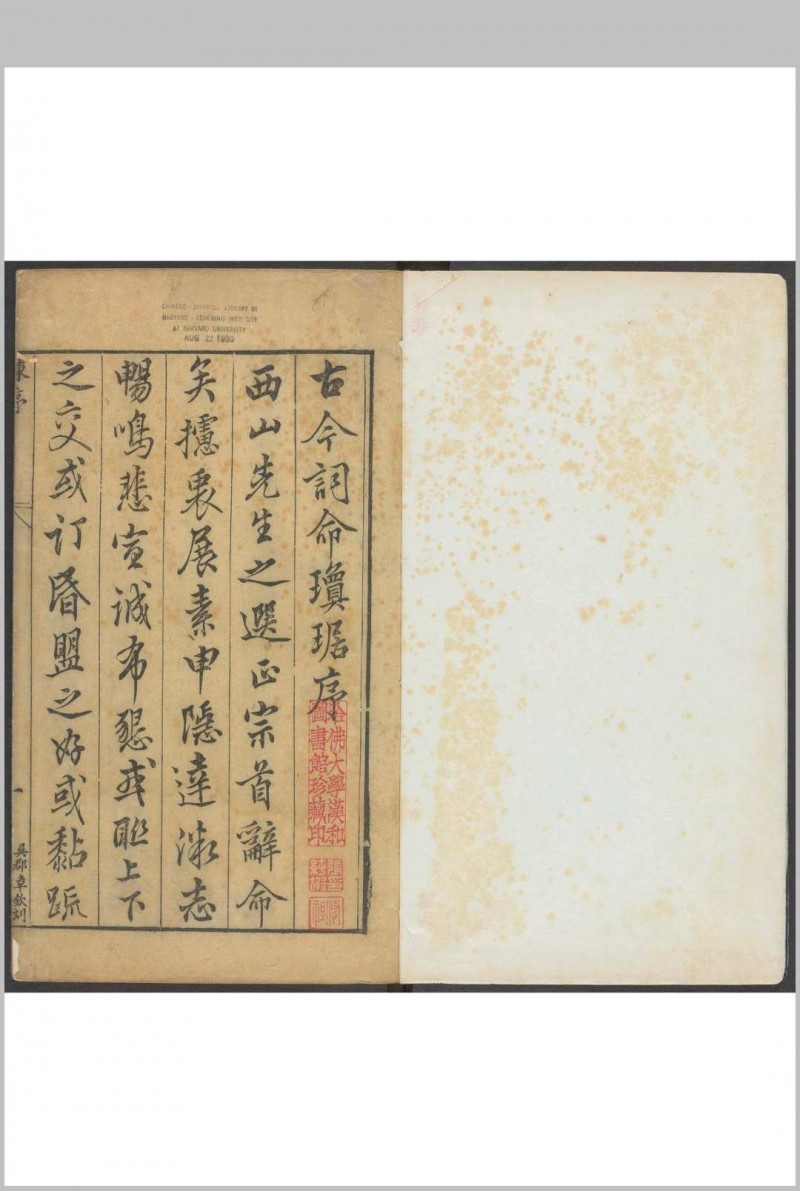 古今詞命瓊琚序
西山先生之選正宗首辭命
矣攄衷展素申隱達微志
暢鳴悲宣誠布懇或聯上下
之交或訂昏盟之好或黏疏
陳序
一
吳郡章欽刻
哈佛大學漢和
圖書館珍藏印
CHINESE - JAPANESE LIBRARY OF
HARVARD - YENCHING INSTITUTE
AT HARVARD UNIVERSITY
AUG 22 1939